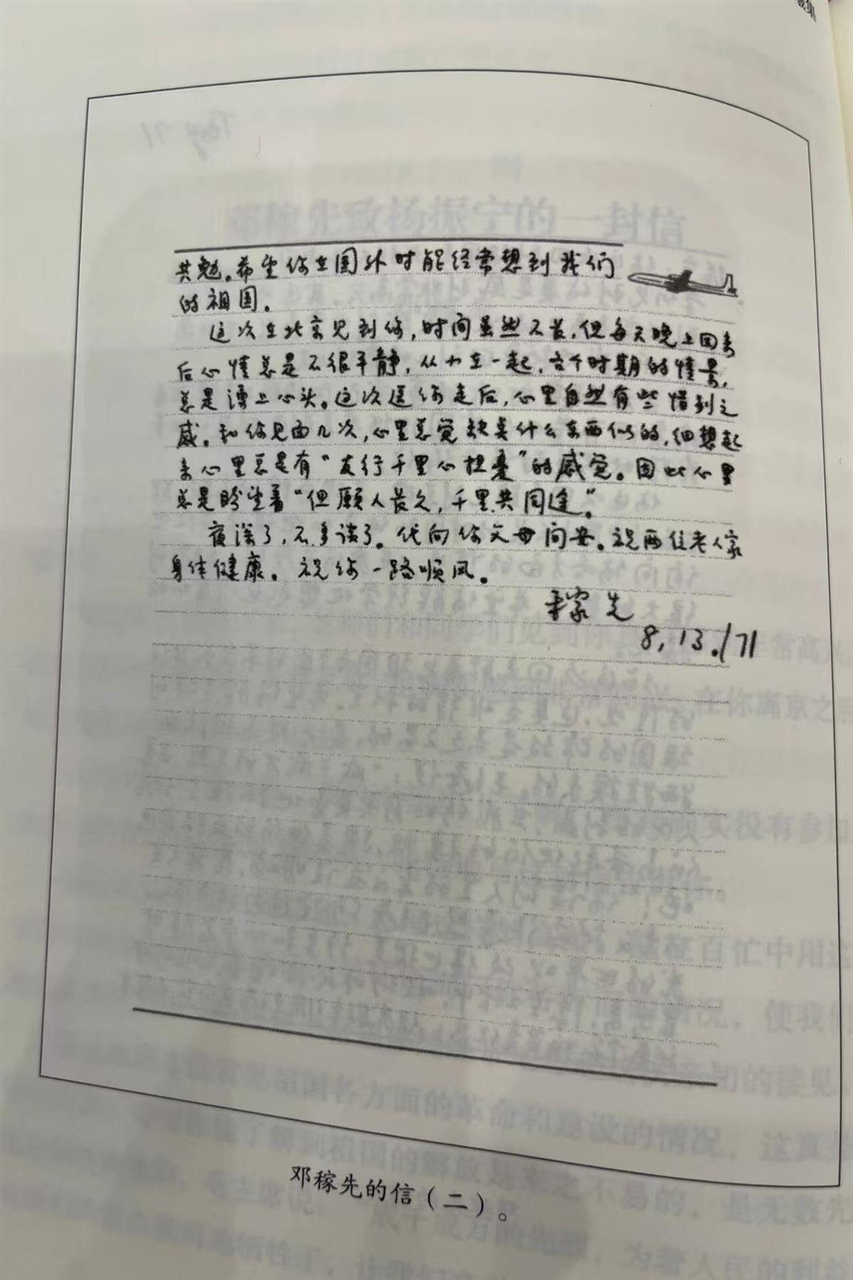 共勉。希望你在国外时能经常想到我们
的祖国。
这次在北京见到你，时间虽然不长，但每天晚上回来
后心情总是不很平静，从小在一起，各个时期的情景，
总是涌上心头。这次送你走后，心里自然有些惜别之
感。和你见面几次，心里总觉缺点什么东西似的，细想起
来心里总是有“友行千里心担忧”的感觉。因此心里
总是盼望着“但愿人长久，千里共同途”。
夜深了，不多谈了。代向你父母问安。祝两位老人家
身体健康。祝你一路顺风。
稼先
8,13./71
邓稼先的信（二）。